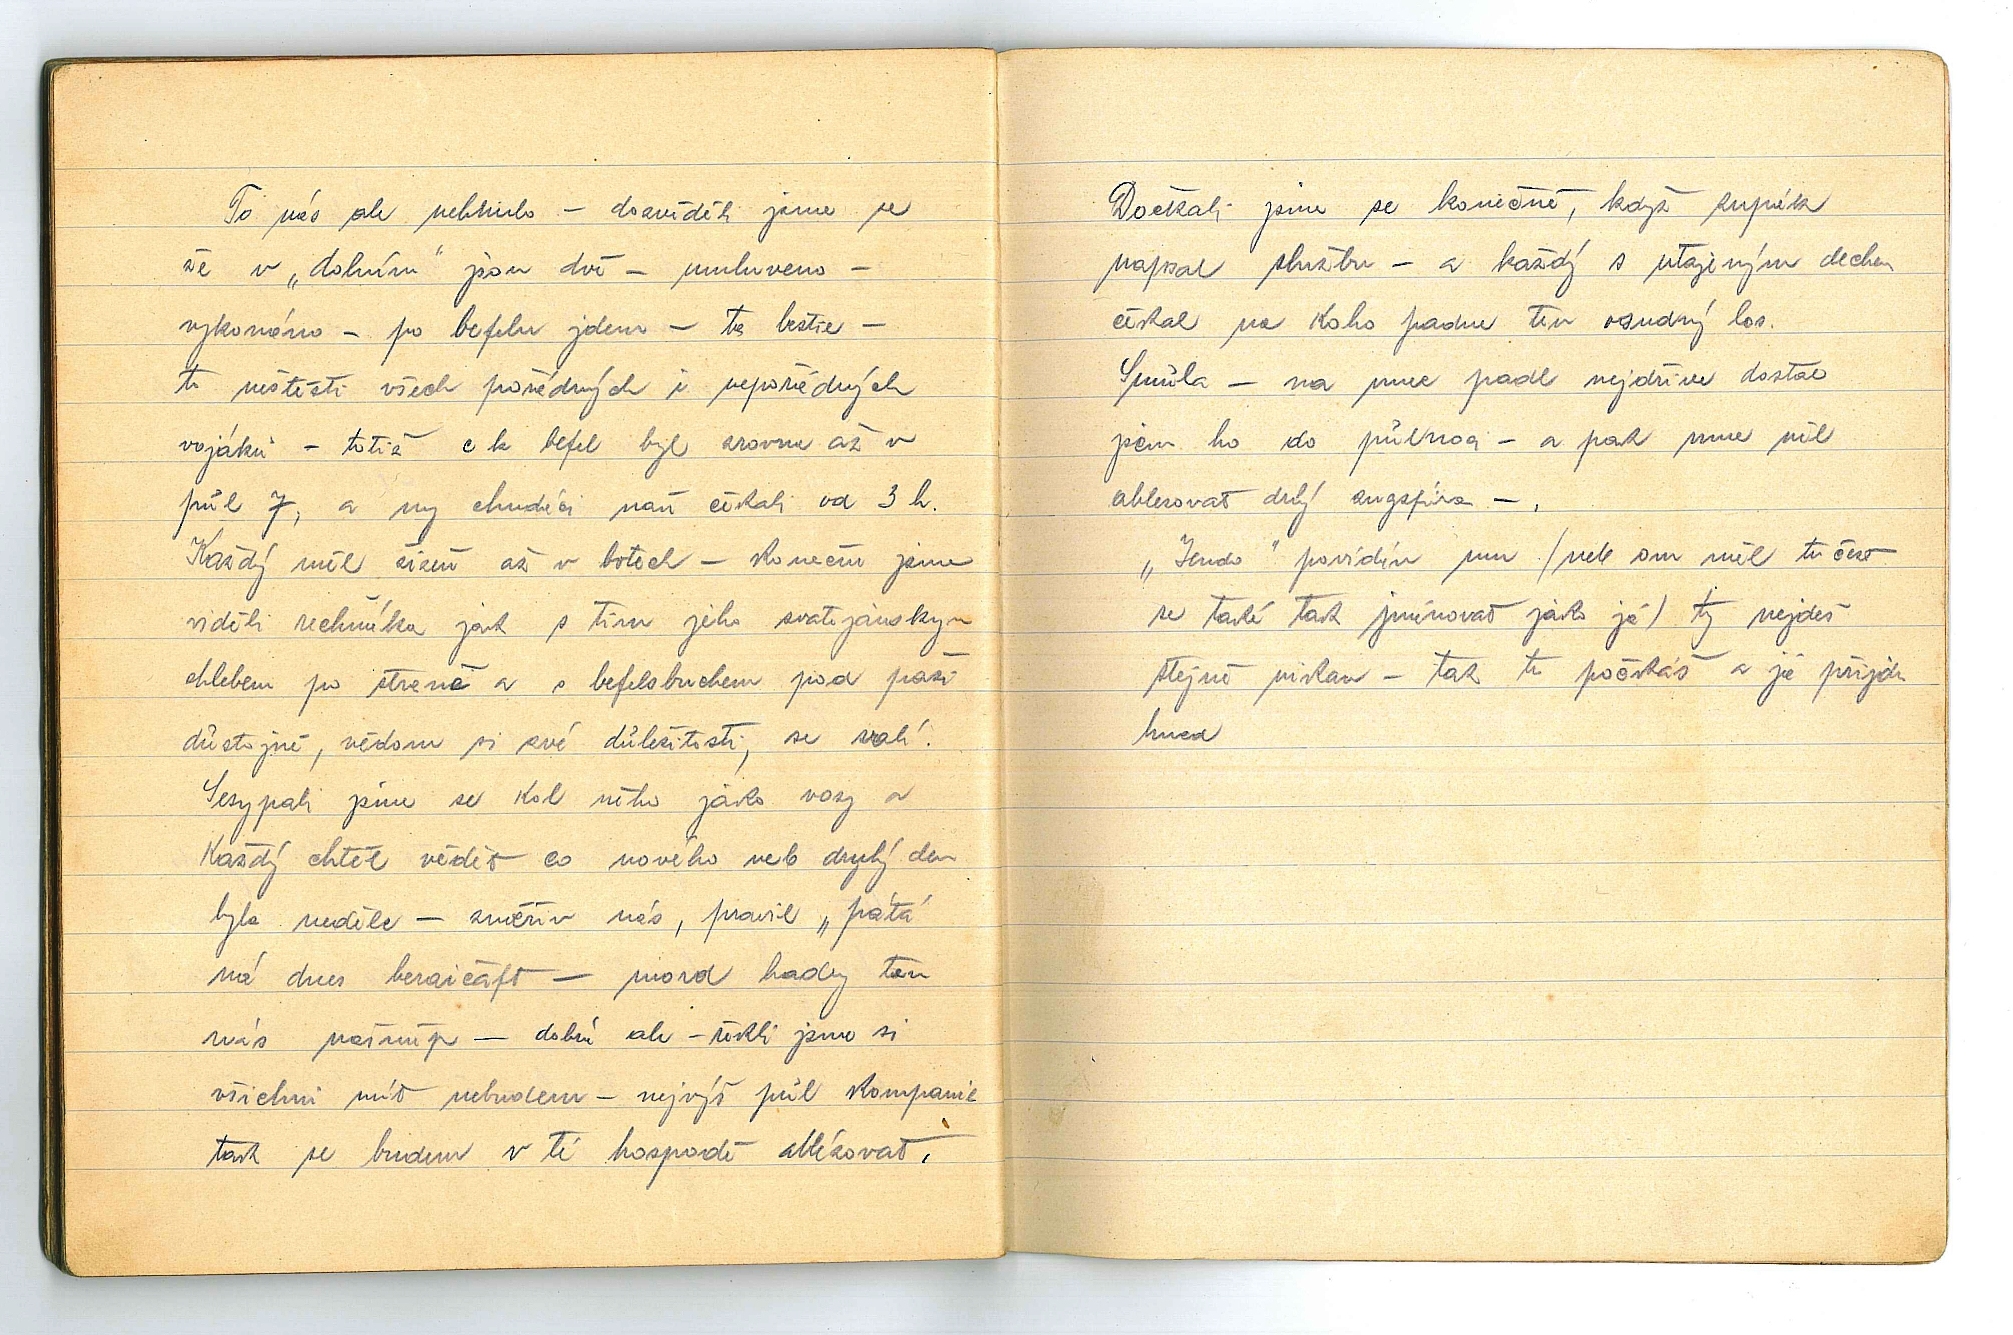 To nás ale nehnulo – dozvěděli jsme se
že v „dolním" jsou dvě – umluveno –
vykonáno – po befelu jdem – ta bestie –
to neštěstí všech pořádných i nepořádných
vojáků – totiž c k befel byl zrovna až v
půl 7, a my chudáci naň čekali od 3 h.
Každý měl žízeň až v botech – konečně jsme
viděli rechňáka jak s tím jeho svatojánským
chlebem po straně a s befelsbuchem pod paží
důstojně, vědom si své důležitosti, se valí.
Sesypali jsme se kol něho jako vosy a
Každý chtěl vědět co nového neb druhý den
byla neděle – změřiv nás, pravil „pátá
má dnes beraičaft – mord hady ten
nás – dobrá ale – řekli jsme si
všichni mít nebudem – nejvýš půl kompanie
tak se budem v té hospodě ablézovat.
Dočkali jsme se konečně, když zupák
napsal službu – a každý s utajeným dechem
čekal na koho padne ten osudný los.
Smůla – na mne padl nejdříve dostal
jsem ho do půlnoci – a pak mne měl
ablezovat druhý zugsfíra –.
„Jendo" povídám mu (neb on měl tu čest
se také tak jménovat jako já) ty nejdeš
stejně nikam – tak tu počkáš a já přijdu
hned